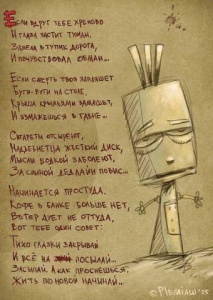 Если вдруг тебе хреново
И глаза застит туман,
Завела в тупик дорога,
И почувствовал обман...
Если смерть твоя попляшет
Буги-вуги на столе,
Крыша крыльями замашет,
И измажешься в говне...
Сигареты отсыреют,
Накдебнется жесткий диск,
Мысли водкой заболеют,
За спиной дедлайн повис...
Начинается простуда,
Кофе в банке больше нет,
Ветер дует не оттуда,
Вот тебе один совет:
Тихо глазки закрывай
И всё на посылай...
Засыпай. А как проснешься,
Жить по новой начинай...